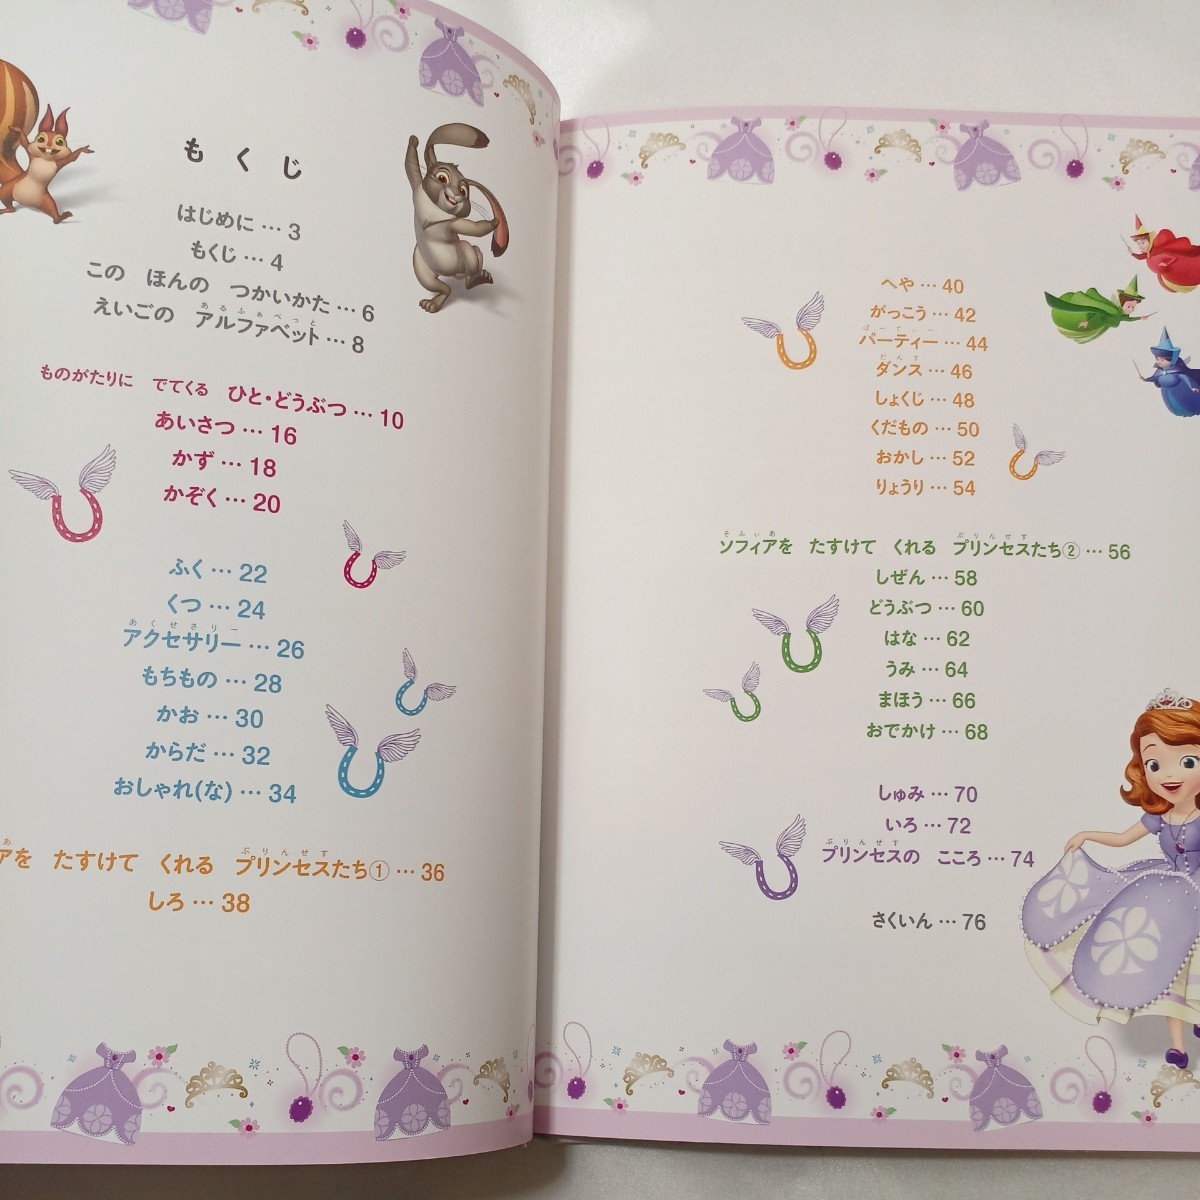 もくじ
はじめに … 3
もくじ … 4
この ほんの つかいかた … 6
あるふぁべっと
えいごの アルファベット … 8
ものがたりに でてくる ひと・どうぶつ … 10
あいさつ … 16
かず … 18
かぞく … 20
ふく … 22
くつ … 24
あくせさりー
アクセサリー … 26
もちもの … 28
かお … 30
からだ … 32
おしゃれ(な) … 34
あ ぷりんせす
アを たすけて くれる プリンセスたち① … 36
しろ … 38
へや … 40
がっこう … 42
ぱーてぃー
パーティー … 44
だんす
ダンス … 46
しょくじ … 48
くだもの … 50
おかし … 52
りょうり … 54
そふぃあ ぷりんせす
ソフィアを たすけて くれる プリンセスたち② … 56
しぜん … 58
どうぶつ … 60
はな … 62
うみ … 64
まほう … 66
おでかけ … 68
しゅみ … 70
いろ … 72
ぷりんせす
プリンセスの こころ … 74
さくいん … 76